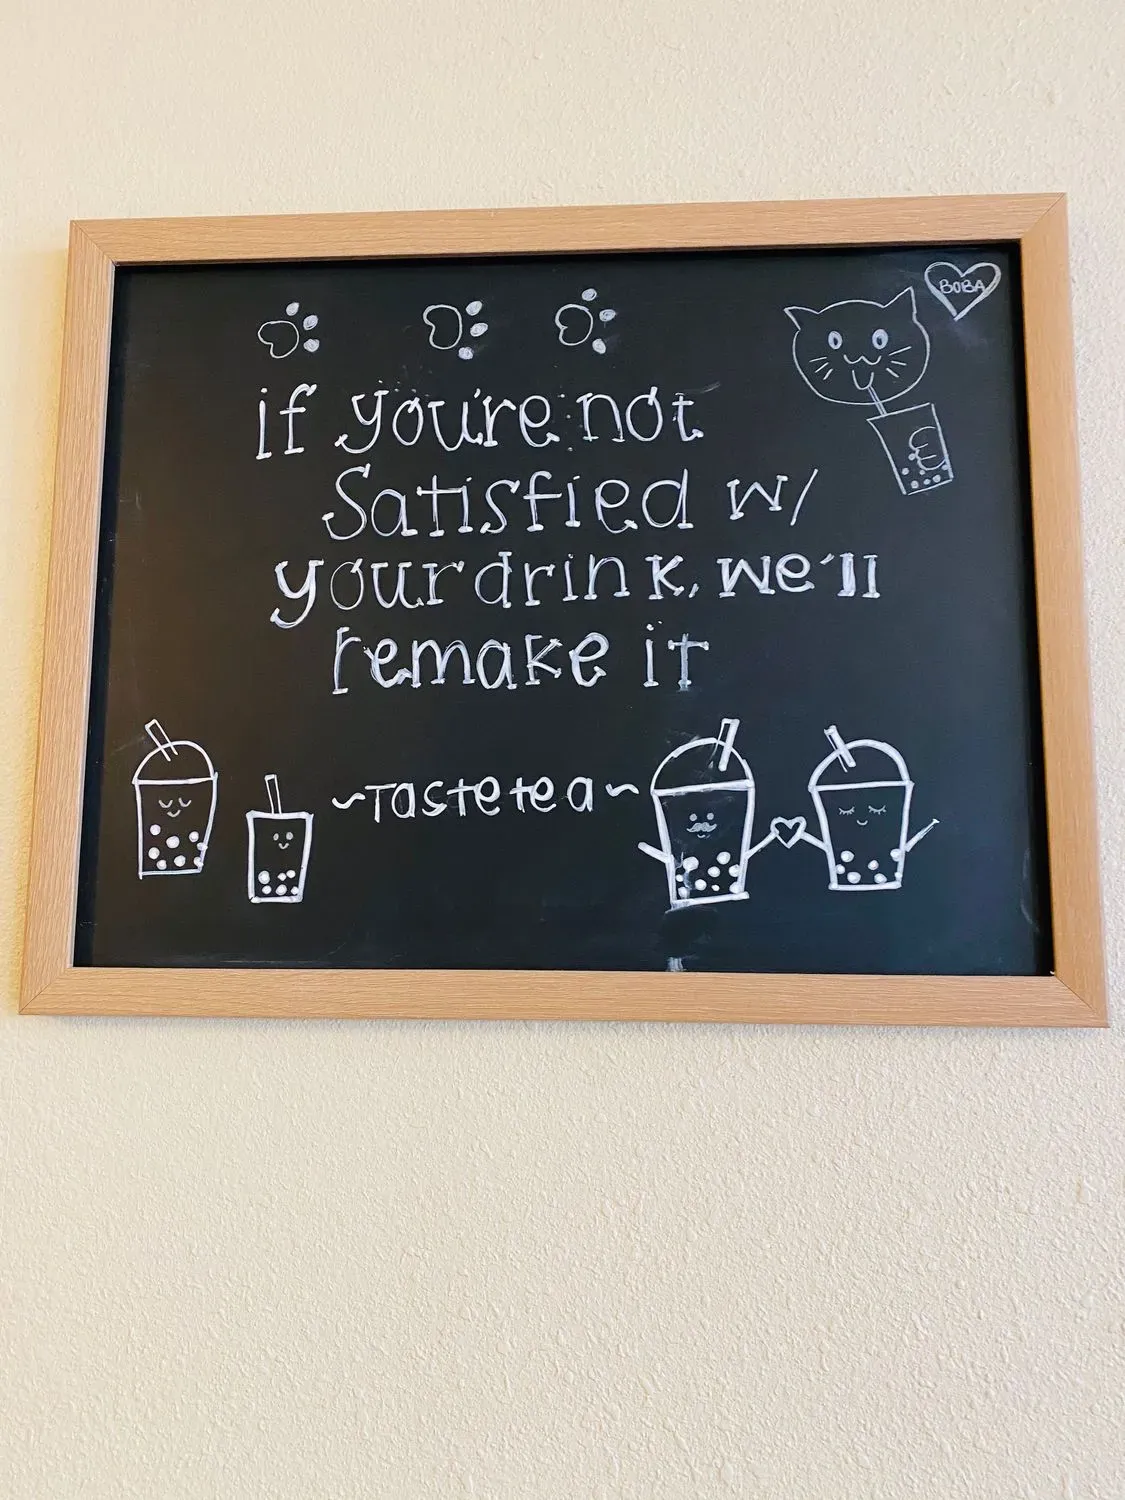 BOBA
if you're not
Satisfied w/
your drink, we'll
remake it
~Tastetea~